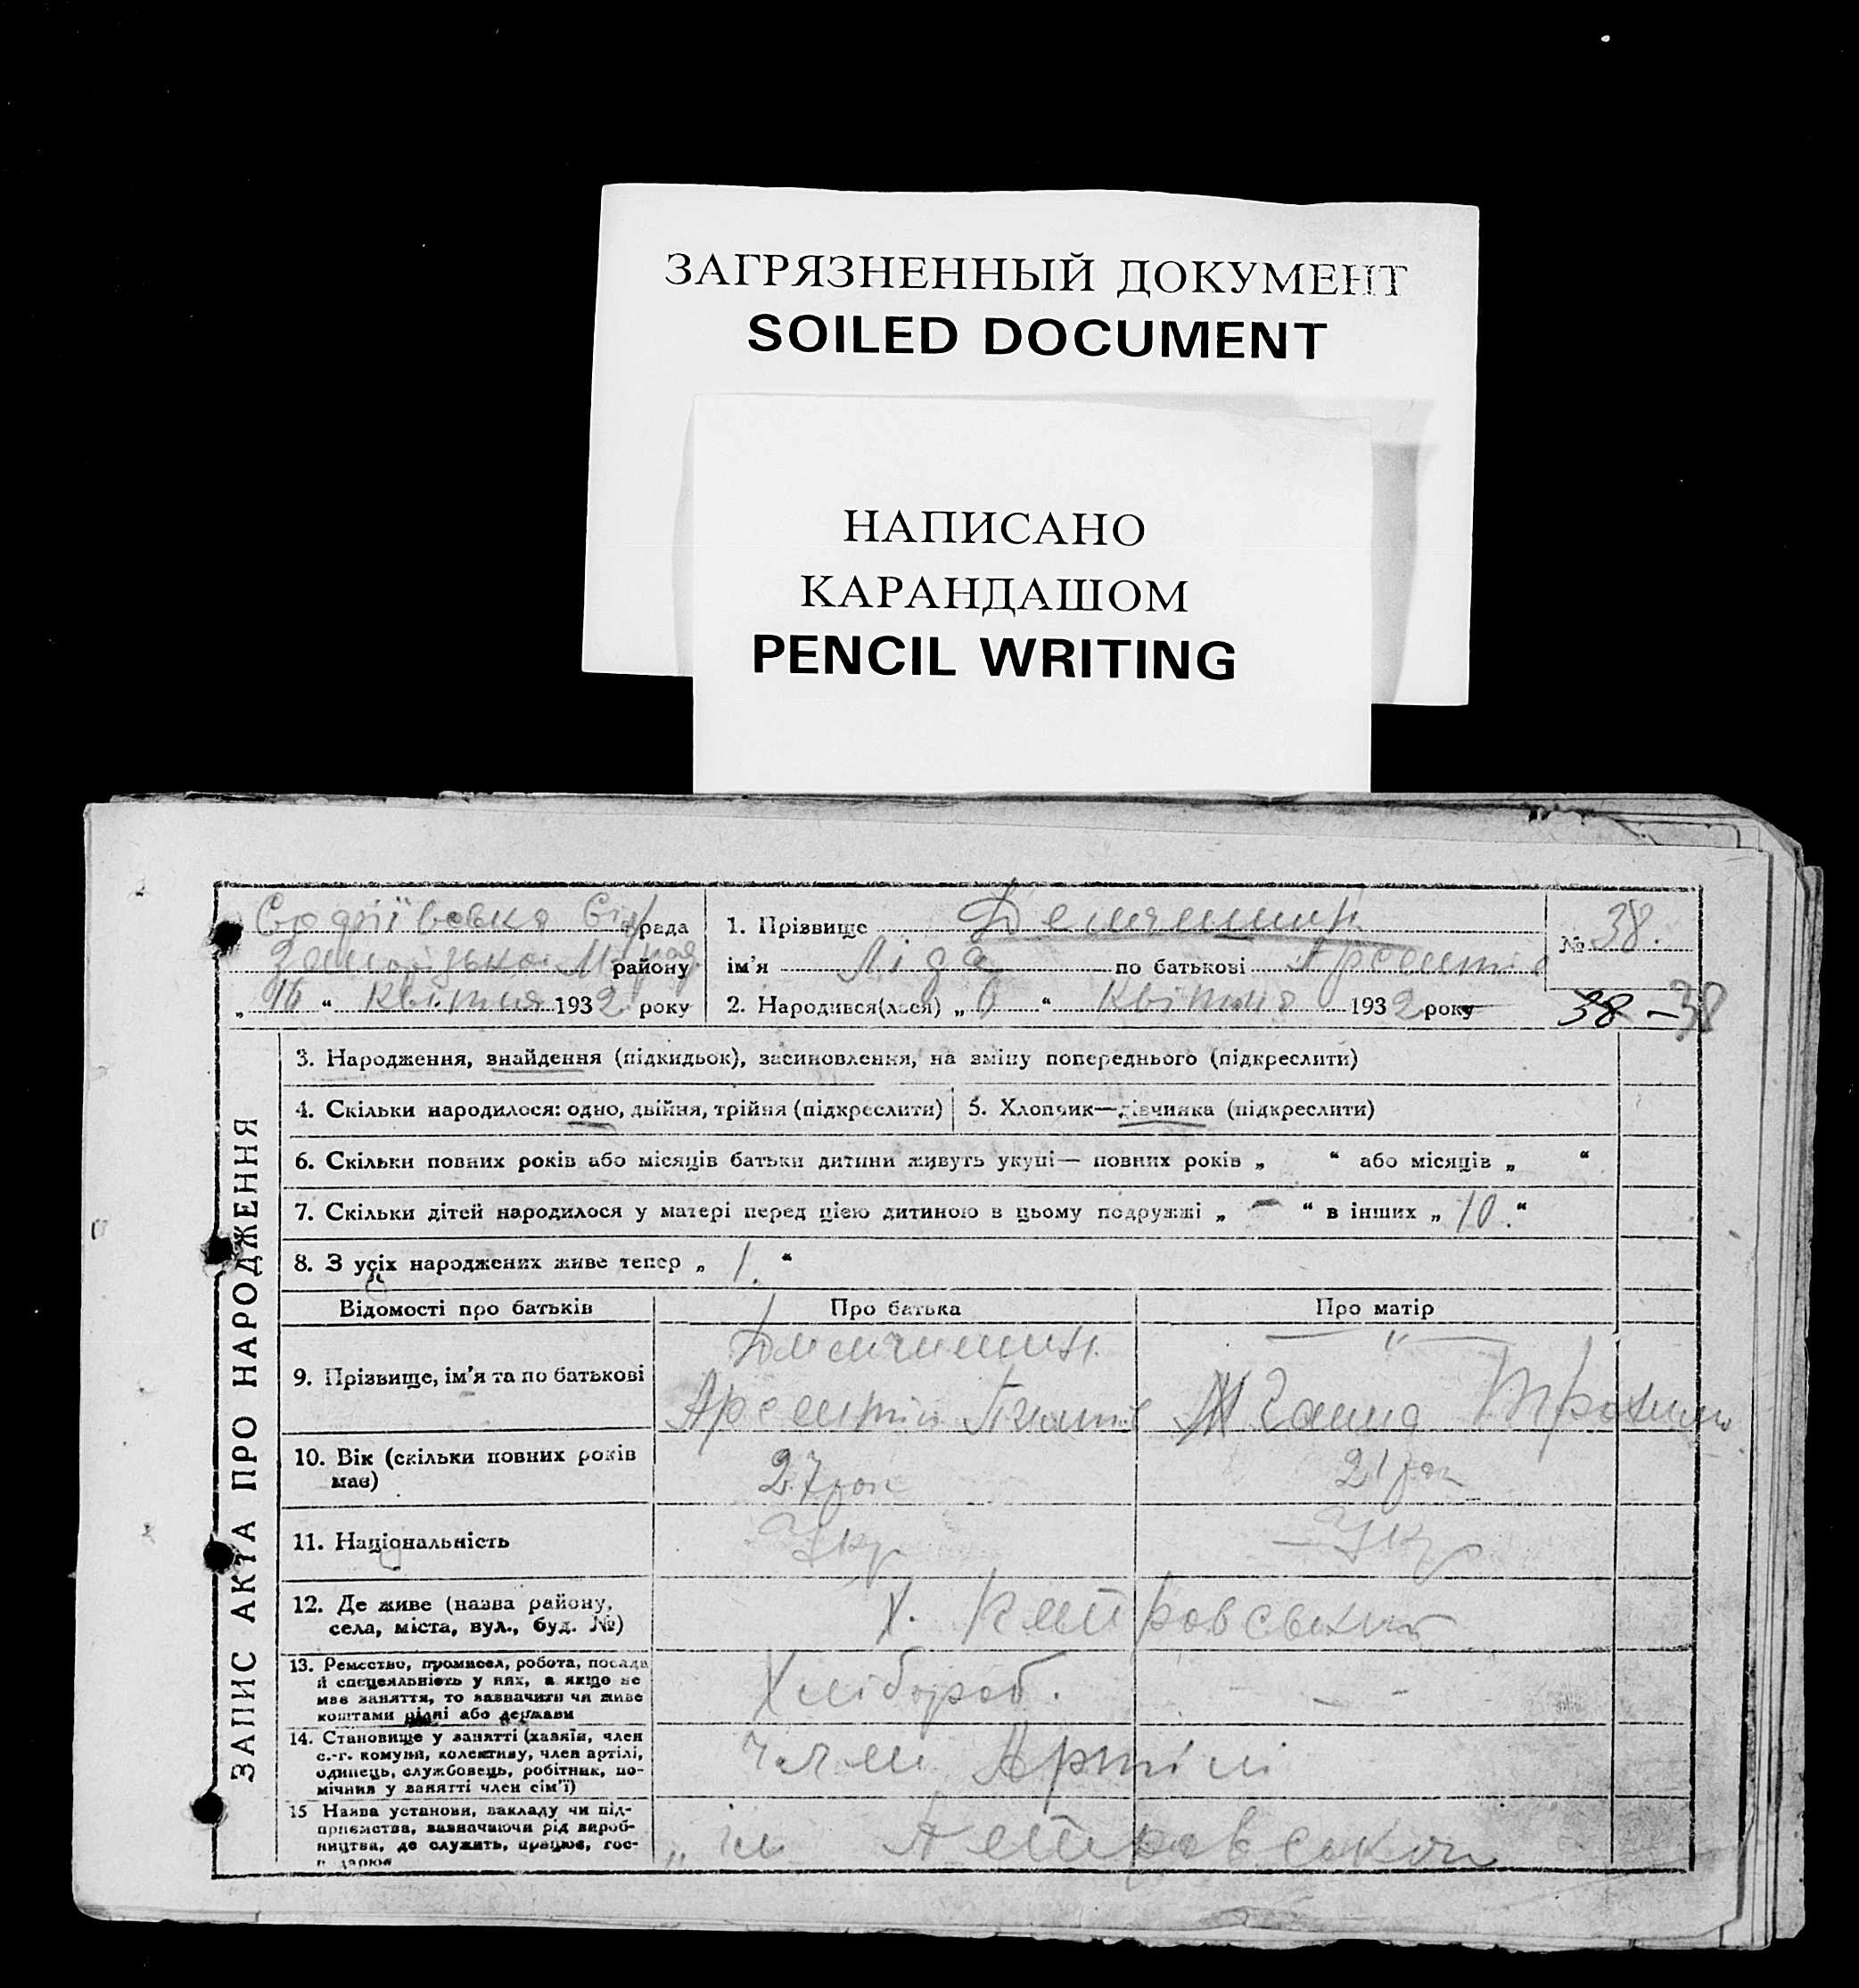 ЗАГРЯЗНЕННЫЙ ДОКУМЕНТ
SOILED DOCUMENT
НАПИСАНО
КАРАНДАШОМ
PENCIL WRITING
Софіївська рада
району
„ 16 “ Квітня 1932 року
1. Прізвище
ім'я Ліда по батькові
2. Народився(лася) „ 6 “ Квітня 1932 року
№ 38.
38 – 38
ЗАПИС АКТА ПРО НАРОДЖЕННЯ
3. Народження, знайдення (підкидьок), засиновлення, на зміну попереднього (підкреслити)
4. Скільки народилося: одно, двійня, трійня (підкреслити)
5. Хлопчик—дівчинка (підкреслити)
6. Скільки повних років або місяців батьки дитини живуть укупі— повних років „ “ або місяців „ “
7. Скільки дітей народилося у матері перед цією дитиною в цьому подружжі „ – “ в інших „ 10. “
8. З усіх народжених живе тепер „ 1. “
Відомості про батьків
Про батька
Про матір
9. Прізвище, ім'я та по батькові
– " –
10. Вік (скільки повних років
має)
27 рок
21 рок
11. Національність
Укр
Укр
12. Де живе (назва району,
села, міста, вул., буд. №)
Х.
13. Ремество, промисел, робота, посада
й спецеяльність у них, а якщо не
має заняття, то зазначити чи живе
коштами рідні або держави
Хлібороб.
– – –
14. Становище у занятті (хазяїн, член
с.-г. комуни, колективу, член артілі,
одинець, службовець, робітник, по-
мічник у занятті член сім'ї)
член Артілі
15 Назва установи, закладу чи під-
приємства, зазначаючи рід вироб-
ництва, де служить, працює, гос-
п дарює